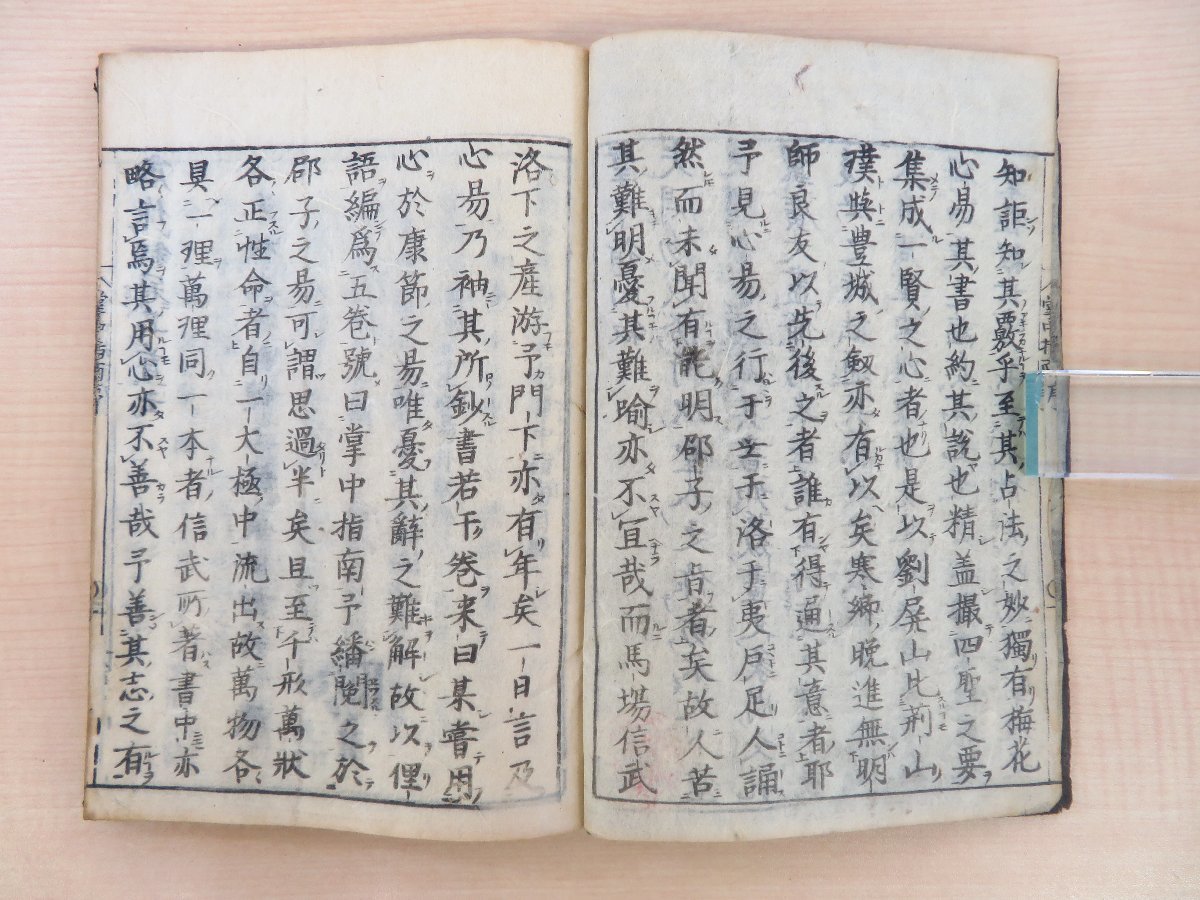 知詎知其覈乎至其占法之妙獨有梅花
心昜其書也約其說也精盖撮四聖之要
集成一賢之心者也是以劉屏山比荆山
璞與豊城之劔亦有以矣寒鄉晚進無明
師良友以先後之者誰有得通其意者耶
予見心昜之行于世于洛于夷戶足人誦
然而未聞有能明邵子之肯者矣故人苦
其難明憂其難喻亦不冝哉而馬場信武
洛下之産游予門下亦有年矣一日言及
心昜乃袖其所鈔書若干卷来曰某嘗用
心於康節之昜唯憂其辭之難解故以俚
語編爲五卷號曰掌中指南予繙閱之於
邵子之昜可謂思過半矣且至千形萬狀
各正性命者自一大極中流出故萬物各
具一理萬理同一本者信武所著書中亦
略言焉其用心亦不善哉予善其志之有